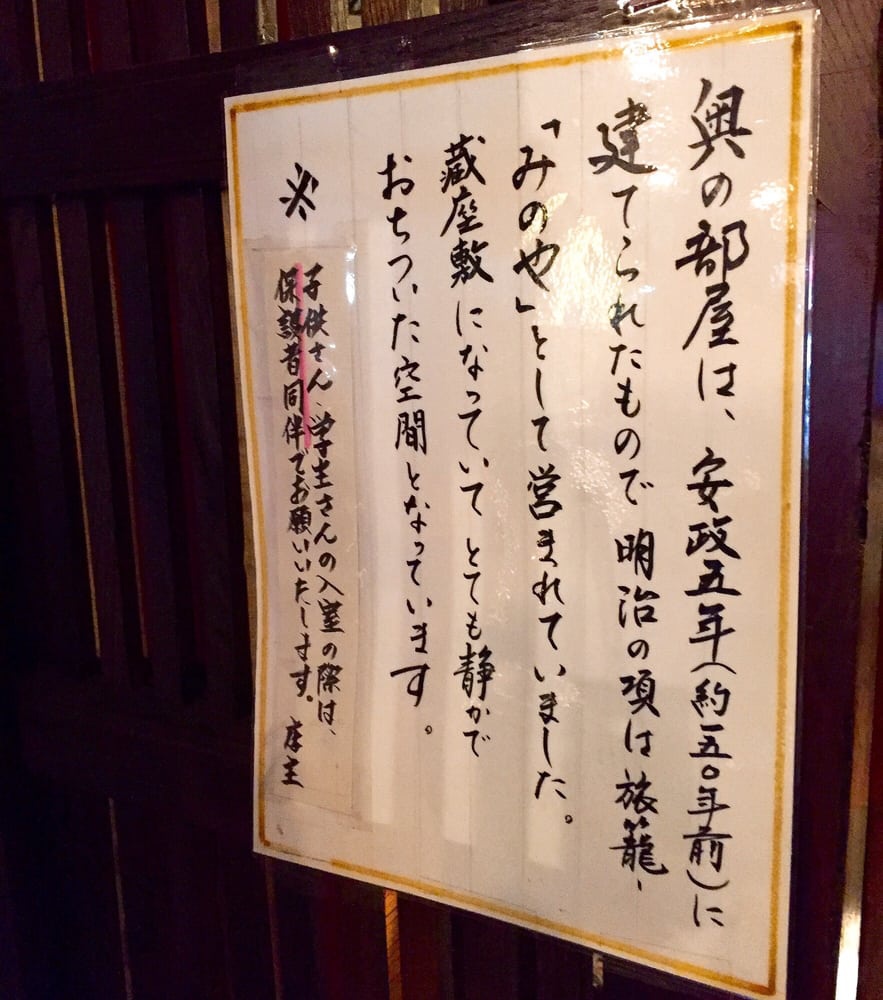 奥の部屋は、安政五年(約一五〇年前)に
建てられたもので 明治の項は旅籠、
「みのや」として営まれていました。
蔵座敷になっていて とても静かで
おちついた空間となっています。
※
子供さん、学生さんの入室の際は、
保護者同伴でお願いいたします。 店主